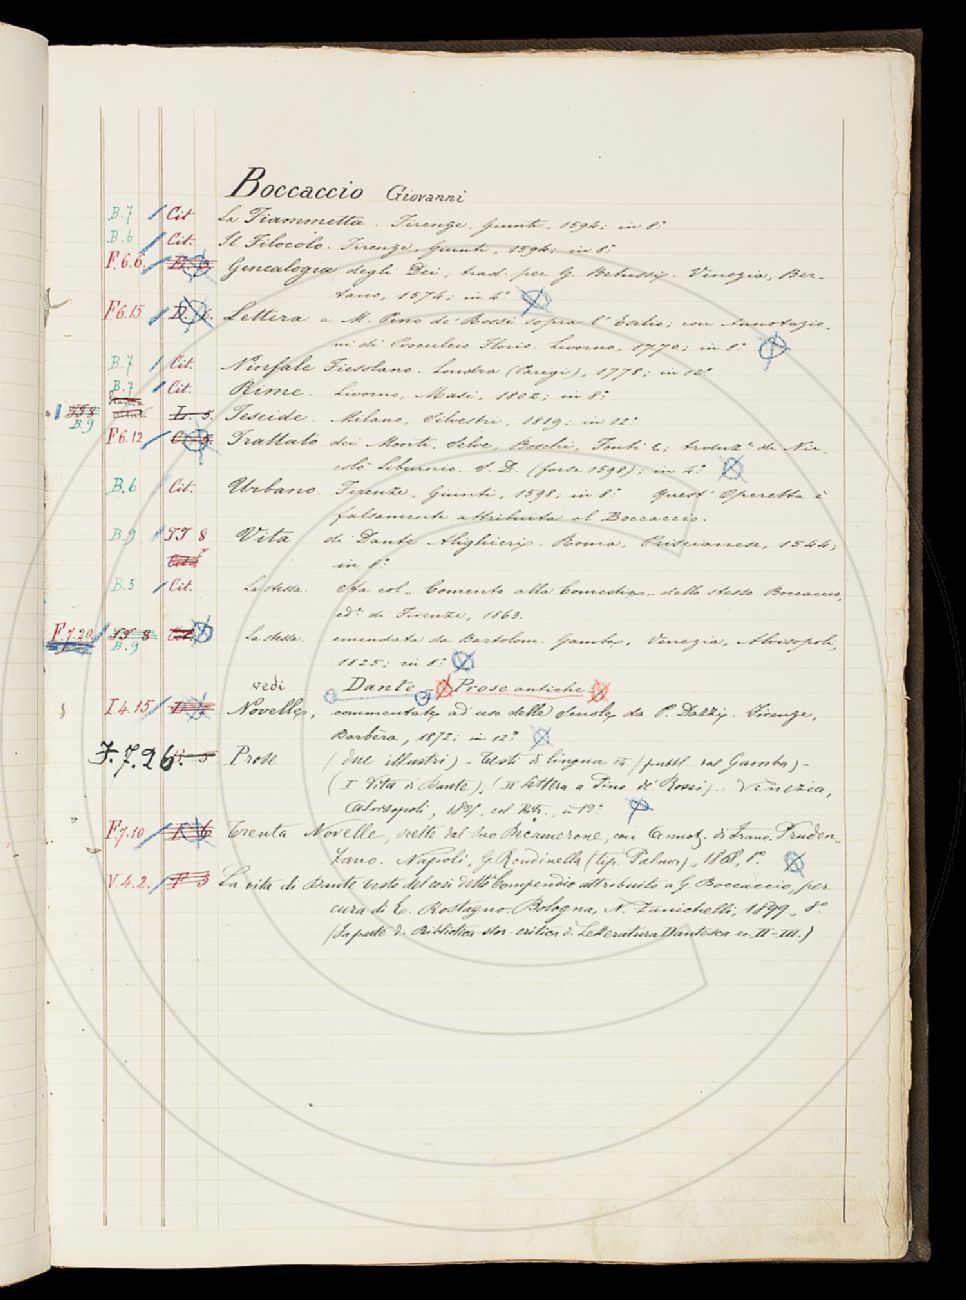 Boccaccio Giovanni
B.7 / Cit La Fiammetta. Firenze, Giunti, 1594; in 8°
B.6 / Cit. Il Filocolo. Firenze, Giunti, 1594; in 8°
F.6.6. / Genealogia degli Dei; trad. per G. Betussi. Venezia, Ber-
tano, 1574; in 4°
F6.15 / Lettera a M. Pino de' Rossi sopra l'Esilio; con Annotazio-
ni di Proculeio Florio. Livorno, 1770; in 8°
B.7 / Cit. Ninfale Fiesolano. Londra (Parigi), 1778; in 12°
B.7 / Cit. Rime. Livorno, Masi, 1802; in 8°
TT 8 L. 5. Teseide. Milano, Silvestri, 1819; in 12°
B.9
F6.12 / C. 5. Trattato dei Monti, Selve, Boschi, Fonti &; traduz.e di Nic-
colò Liburnio. S. D. (forse 1598); in 4°
B.6 Cit. Urbano. Firenze, Giunti, 1598; in 8° Quest' Operetta è
falsamente attribuita al Boccaccio.
B.9 / TT 8 Vita di Dante Alighieri. Roma, Priscianese, 1544;
in 8°
B.5 / Cit. La stessa. Sta col "Comento alla Comedia" dello stesso Boccaccio,
ed.e di Firenze, 1863.
F.7.20 / TT 8 La stessa emendata da Bartolom. Gamba, Venezia, Alvisopoli,
B.9 1825; in 8°
vedi Dante - Prose antiche
I.4.15 / Novelle, commentate ad uso delle Scuole da P. Dazzi. Firenze,
Barbèra, 1872; in 12°
F.7.26. 5 Prose (due illustri) - Testi di lingua (pubbl. dal Gamba) -
(I Vita di Dante); (II lettera a Pino de' Rossi). Venezia,
Alvisopoli, col Ritr., in 12°
F7.10 / Trenta Novelle, scelte dal suo Decamerone, con Annot. di Franc. Pruden-
zano. Napoli, G. Rondinella (tip. Palma), 1868, 8°.
V.4.2. / P 3 La vita di Dante testo del così detto Compendio attribuito a G. Boccaccio, per
cura di E. Rostagno. Bologna, N. Zanichelli, 1899, 8°
(Fa parte d. Biblioteca stor. critica d. Letteratura Dantesca n. II-III.)